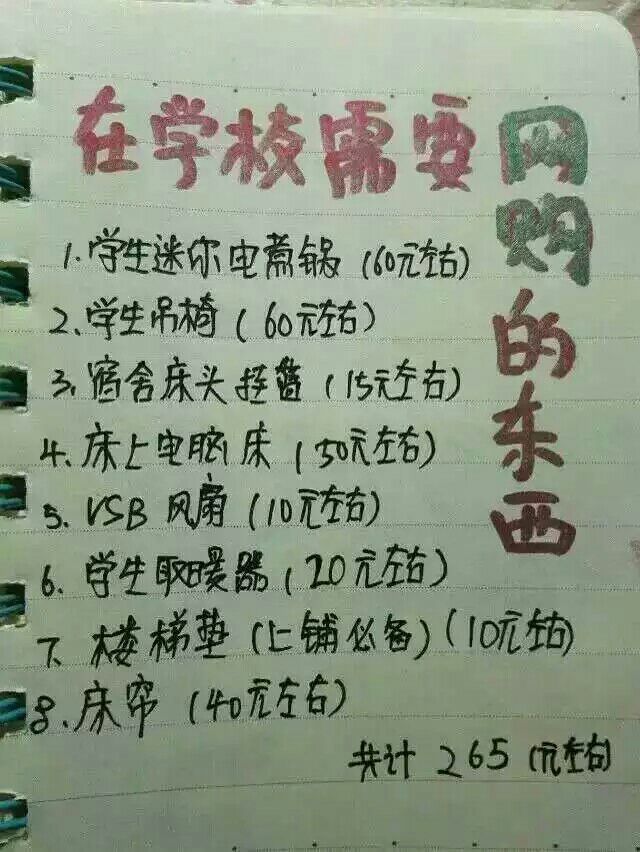 在学校需要网购的东西
1.学生迷你电煮锅(60元左右)
2.学生吊椅(60元左右)
3.宿舍床头挂篮(15元左右)
4.床上电脑床(50元左右)
5.USB风扇(10元左右)
6.学生取暖器(20元左右)
7.楼梯垫(上铺必备)(10元左右)
8.床帘(40元左右)
共计265(元左右)